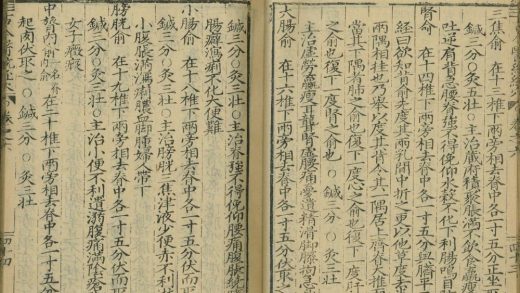 三焦俞　在十三椎下兩旁相去脊中各一寸五分正坐
鍼五分○灸三壯○主治藏府積聚脹滿不飲食羸瘦
吐逆肩背急腰脊強不得俛仰水穀不化下利腸鳴目
腎俞　在十四椎下兩旁相去脊中各一寸五分與臍平
經曰欲知背俞先度其兩乳間中折之更以他草度去
兩隅相拄也乃舉以度其背令其一隅居上齊脊大椎
當其下隅者肺之俞也復下一度心之俞也復下一度肝
之俞也復下一度腎之俞也　○鍼三分○灸三壯
主治虛勞羸瘦耳聾腎虛腰痛夢遺精滑脚膝拘急
大腸俞　在十六椎下兩旁相去脊中各一寸五分伏取之
鍼三分○灸三壯○主治脊強不得俛仰腰痛腹脹繞
腸癖瀉痢不化大便難
小腸俞　在十八椎下兩旁相去脊中各一寸五分伏而
鍼三分○灸三壯○主治膀胱三焦津液少便赤不利
小腹脹滿瀉痢膿血脚腫婦人帶下
膀胱俞　在十九椎下兩旁相去脊中各一寸五分伏而
鍼三分○灸三壯○主治小便不利遺溺腹痛滿陰瘡
女子瘕
中膂內俞　在二十椎下兩旁相去脊中各一寸五分
起肉伏取之○鍼三分○灸三壯
古今醫統正　卷之六　四十四